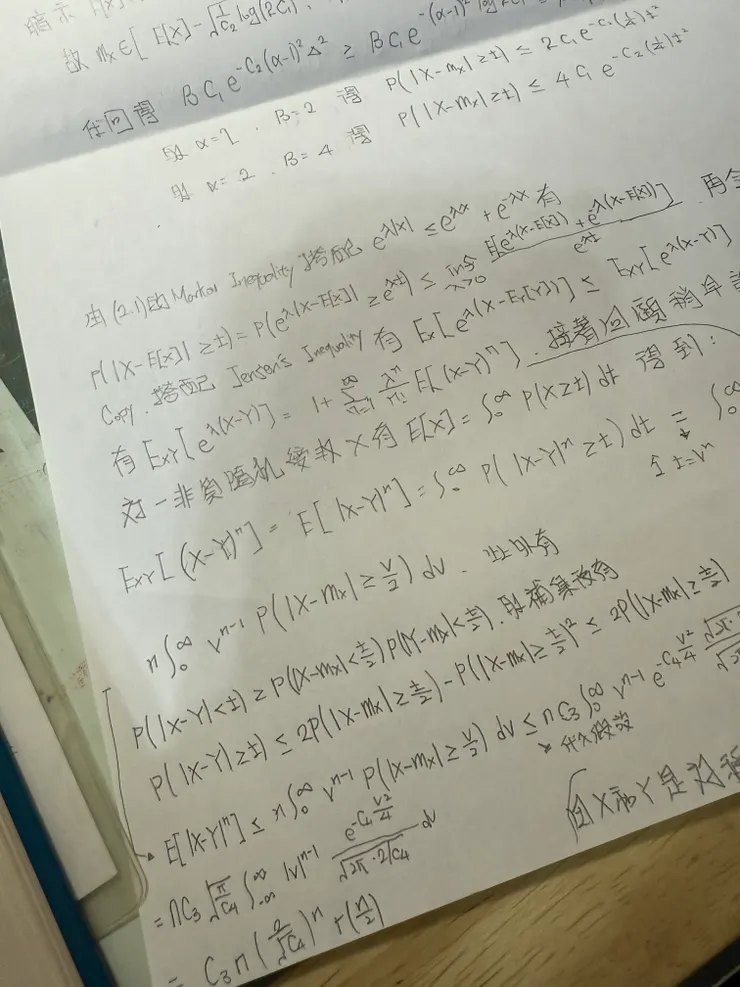 暗示 E[X]-
故 mx∈[ E[X]-√1/C₂ log(2C₁),
任回得 BC₁e^{-C₂(α-1)²Δ²} ≥ BC₁e^{-(α-1)² log
取 α=2 . B=2 得 P(|X-mx|≥t) ≤ 2C₁e^{-C₁(1/4)t²}
取 α=2 . B=4 得 P(|X-mx|≥t) ≤ 4C₁e^{-C₂(1/4)t²}
由 (2.1) 的 Markov Inequality 搭配 e^{λ|x|} ≤ e^{λx} + e^{-λx} 有
P(|X-E[X]| ≥t) = P(e^{λ|X-E[X]|} ≥ e^{λt}) ≤ inf_{λ>0} E[e^{λ(X-E[X])} + e^{λ(X-E[X])}] / e^{λt} . 再令
Copy . 搭配 Jensen's Inequality 有 Ex[e^{λ(X-EY[Y])}] ≤ Exy[e^{λ(X-Y)}]
有 Exy[e^{λ(X-Y)}] = 1+ Σ_{n=1}^∞ λⁿ/n! E[(X-Y)ⁿ] . 接著回顧稍早
對一非負隨機變數 X 有 E[X] = ∫₀^∞ P(X≥t) dt 得到:
Exy[(X-Y)ⁿ] = E[|X-Y|ⁿ] = ∫₀^∞ P(|X-Y|ⁿ ≥t) dt = ∫₀^∞
令 t=vⁿ
n∫₀^∞ v^{n-1} P(|X-mx|≥v/2) dv . 此外有
P(|X-Y|<t) ≥ P(|X-mx|<t/2) P(|Y-mx|<t/2) . 取補集後有
P(|X-Y|≥t) ≤ 2P(|X-mx|≥t/2) - P(|X-mx|≥t/2)² ≤ 2P(|X-mx|≥t/2)
E[|X-Y|ⁿ] ≤ n∫₀^∞ v^{n-1} P(|X-mx|≥v/2) dv ≤ nC₃∫₀^∞ v^{n-1} e^{-C₄v²/4}
代入假設
= nC₃√π/C₄ ∫_{-∞}^∞ |v|^{n-1} e^{-C₄v²/4} / √2π·2/C₄ dv
因 X 和 Y 是對稱
= C₃n(2/√C₄)ⁿ Γ(n/2)